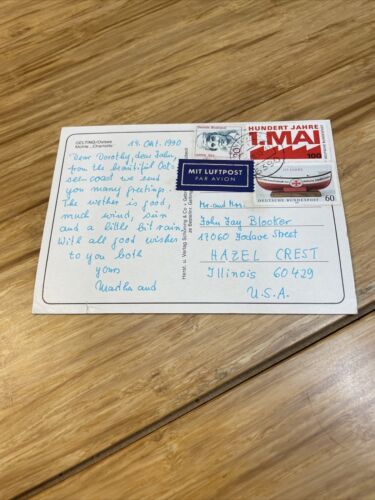 GELTING/Ostsee
Mühle „Charlotte“
14. Okt. 1990
Dear Dorothy, dear John,
from the beautiful Ost-
see coast we send
you many greetings.
The wether is good,
much wind, sun
and a little bit rain.
With all good wishes
to you both
yours
Martha and
Herst. u. Verlag Schöning & Co
MIT LUFTPOST
PAR AVION
HUNDERT JAHRE
1. MAI
100
DEUTSCHE BUNDESPOST
60
Mr. and Mrs.
John Jay Blocker
17060 Jodave Street
HAZEL CREST
Illinois 60429
U.S.A.